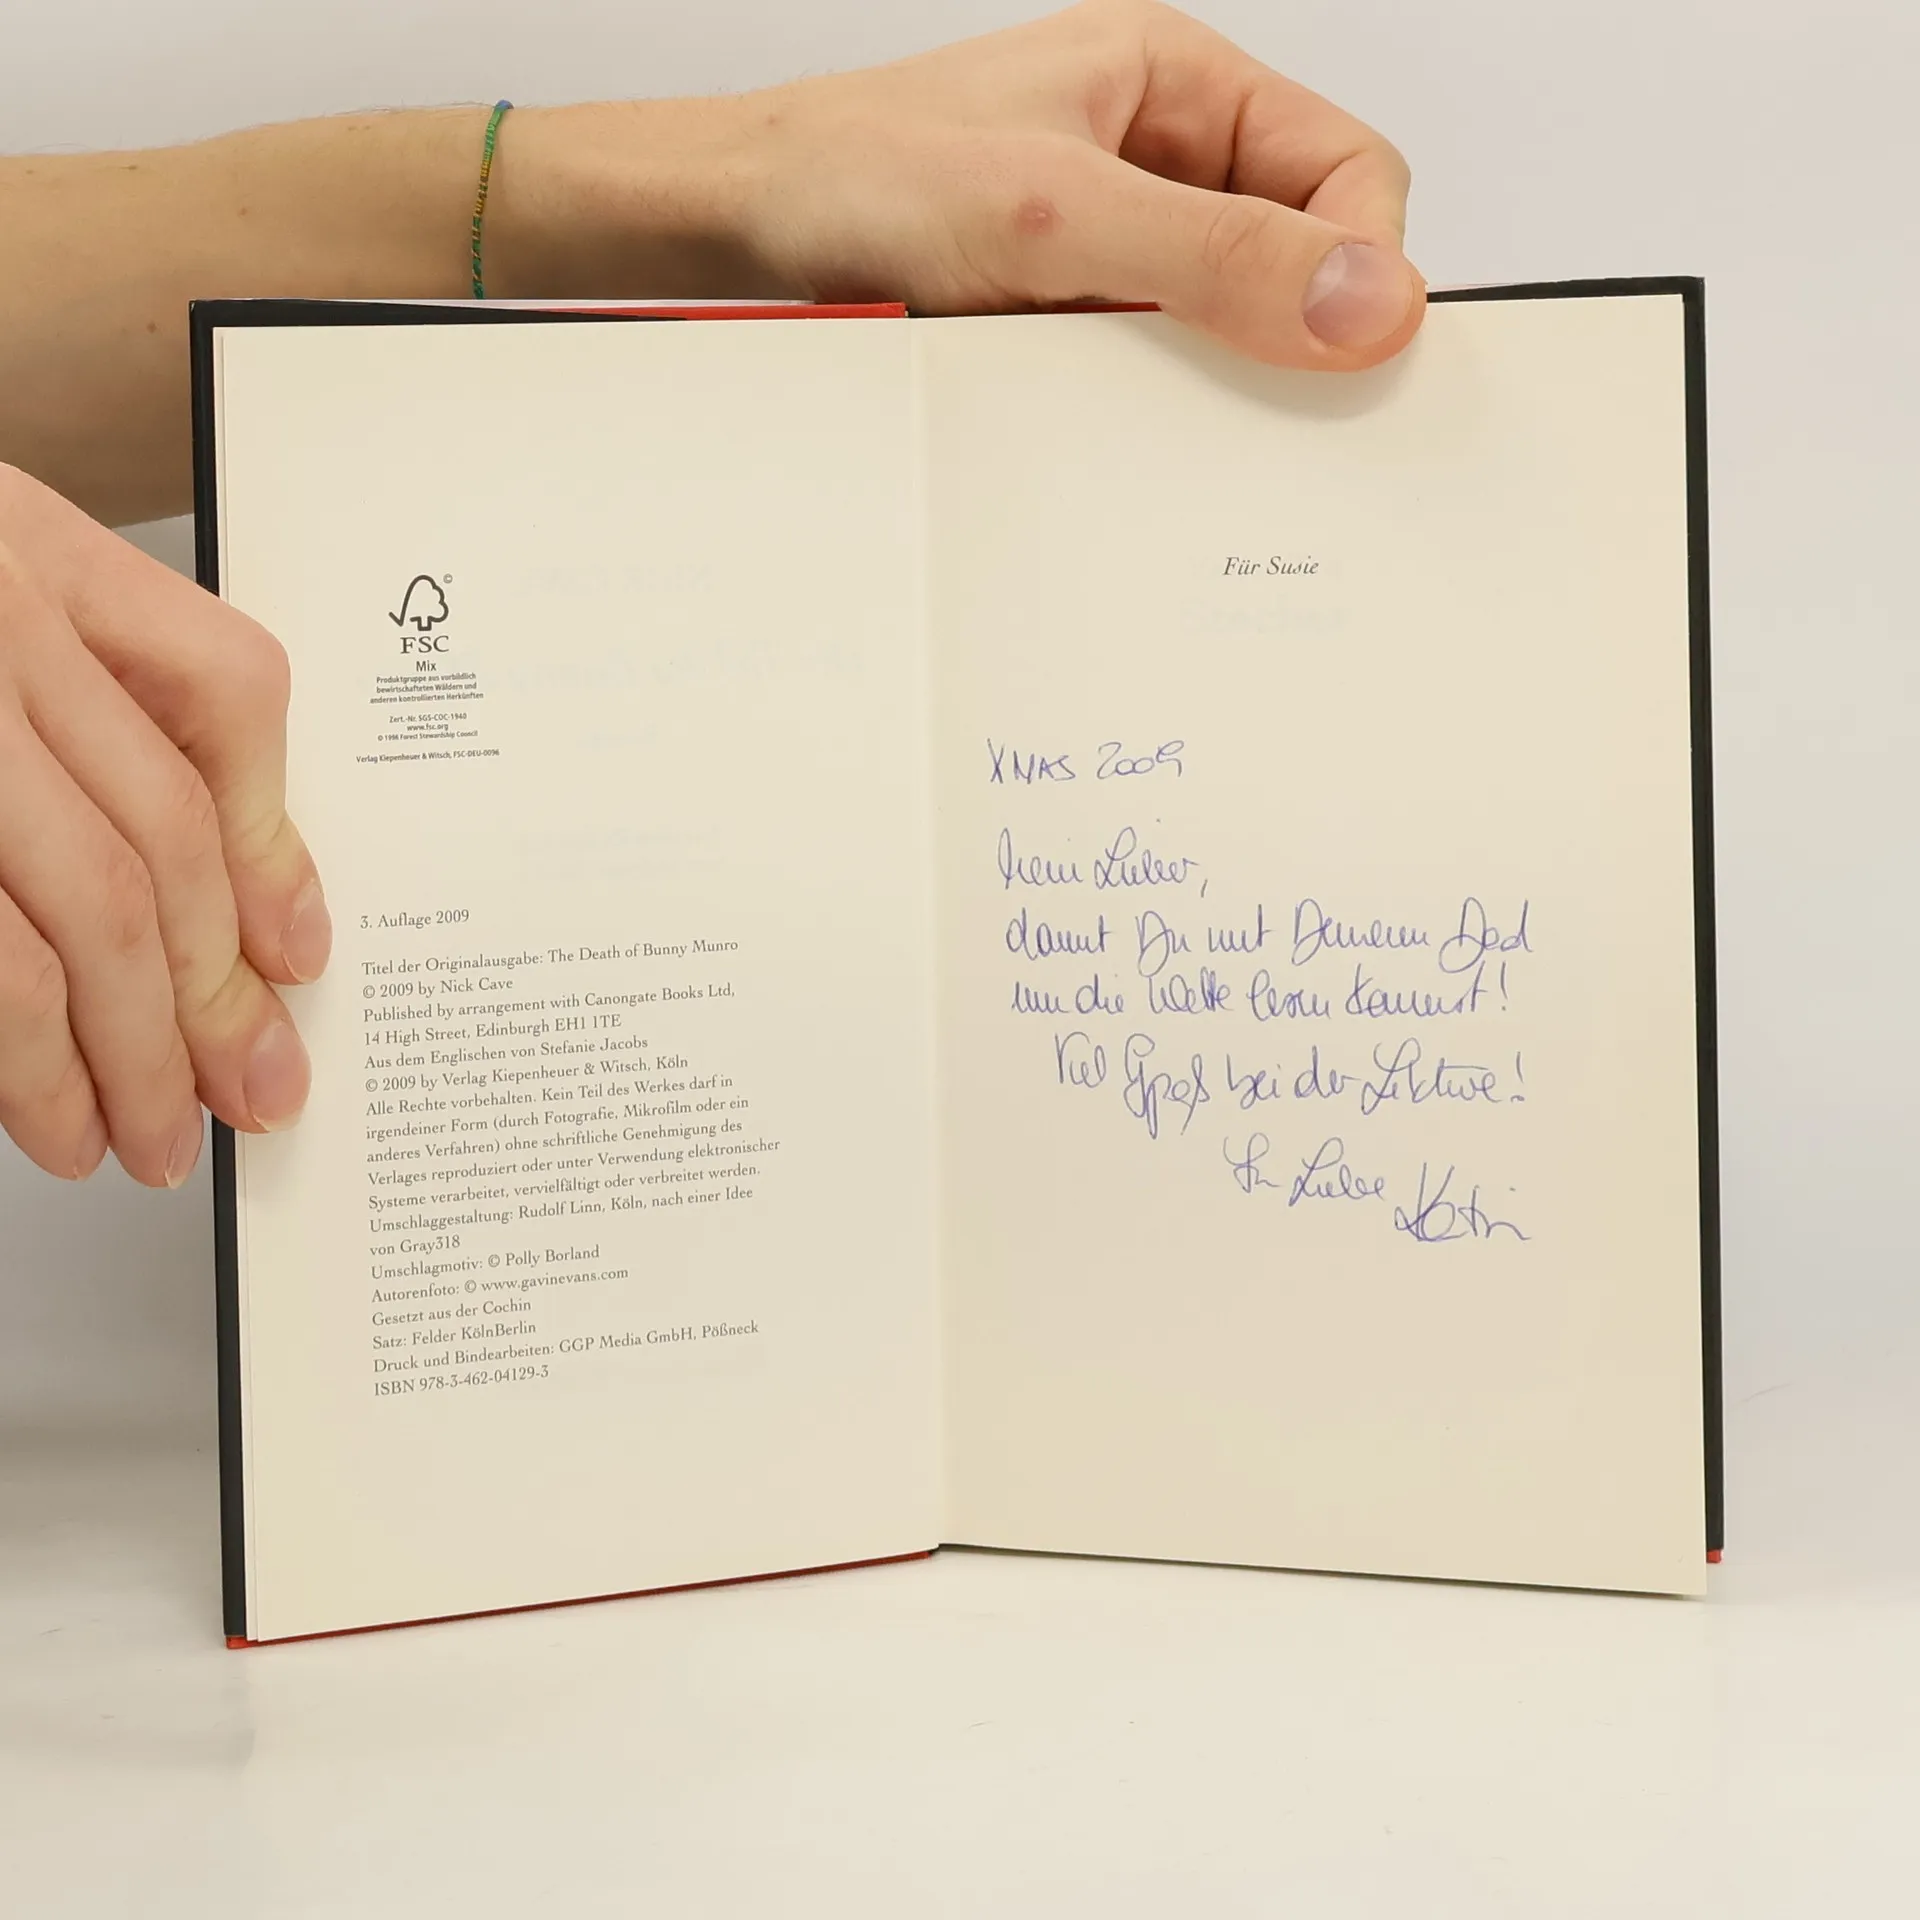 ©
FSC
Mix
Produktgruppe aus vorbildlich
bewirtschafteten Wäldern und
anderen kontrollierten Herkünften
Zert.-Nr. SGS-COC-1940
www.fsc.org
© 1996 Forest Stewardship Council
Verlag Kiepenheuer & Witsch, FSC-DEU-0096
3. Auflage 2009
Titel der Originalausgabe: The Death of Bunny Munro
© 2009 by Nick Cave
Published by arrangement with Canongate Books Ltd,
14 High Street, Edinburgh EH1 1TE
Aus dem Englischen von Stefanie Jacobs
© 2009 by Verlag Kiepenheuer & Witsch, Köln
Alle Rechte vorbehalten. Kein Teil des Werkes darf in
irgendeiner Form (durch Fotografie, Mikrofilm oder ein
anderes Verfahren) ohne schriftliche Genehmigung des
Verlages reproduziert oder unter Verwendung elektronischer
Systeme verarbeitet, vervielfältigt oder verbreitet werden.
Umschlaggestaltung: Rudolf Linn, Köln, nach einer Idee
von Gray318
Umschlagmotiv: © Polly Borland
Autorenfoto: © www.gavinevans.com
Gesetzt aus der Cochin
Satz: Felder KölnBerlin
Druck und Bindearbeiten: GGP Media GmbH, Pößneck
ISBN 978-3-462-04129-3
Für Susie
XMAS 2009
Mein Lieber,
damit Du mit Deinem Dad
um die Wette lesen kannst!
Viel Spaß bei der Lektüre!
In Liebe